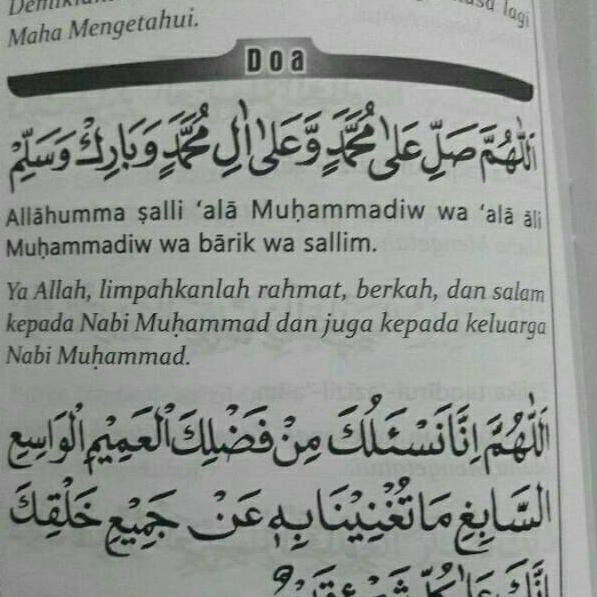 lagi
Maha Mengetahui.
Doa
اَللّٰهُمَّ صَلِّ عَلٰى مُحَمَّدٍ وَّعَلٰى اٰلِ مُحَمَّدٍ وَبَارِكْ وَسَلِّمْ
Allāhumma ṣalli ‘alā Muḥammadiw wa ‘alā āli
Muḥammadiw wa bārik wa sallim.
Ya Allah, limpahkanlah rahmat, berkah, dan salam
kepada Nabi Muḥammad dan juga kepada keluarga
Nabi Muḥammad.
اَللّٰهُمَّ اِنَّانَسْئَلُكَ مِنْ فَضْلِكَ الْعَمِيْمِ الْوَاسِعِ
السَّابِغِ مَاتُغْنِيْنَابِهٖ عَنْ جَمِيْعِ خَلْقِكَ
اِنَّكَ عَلٰى كُلِّ